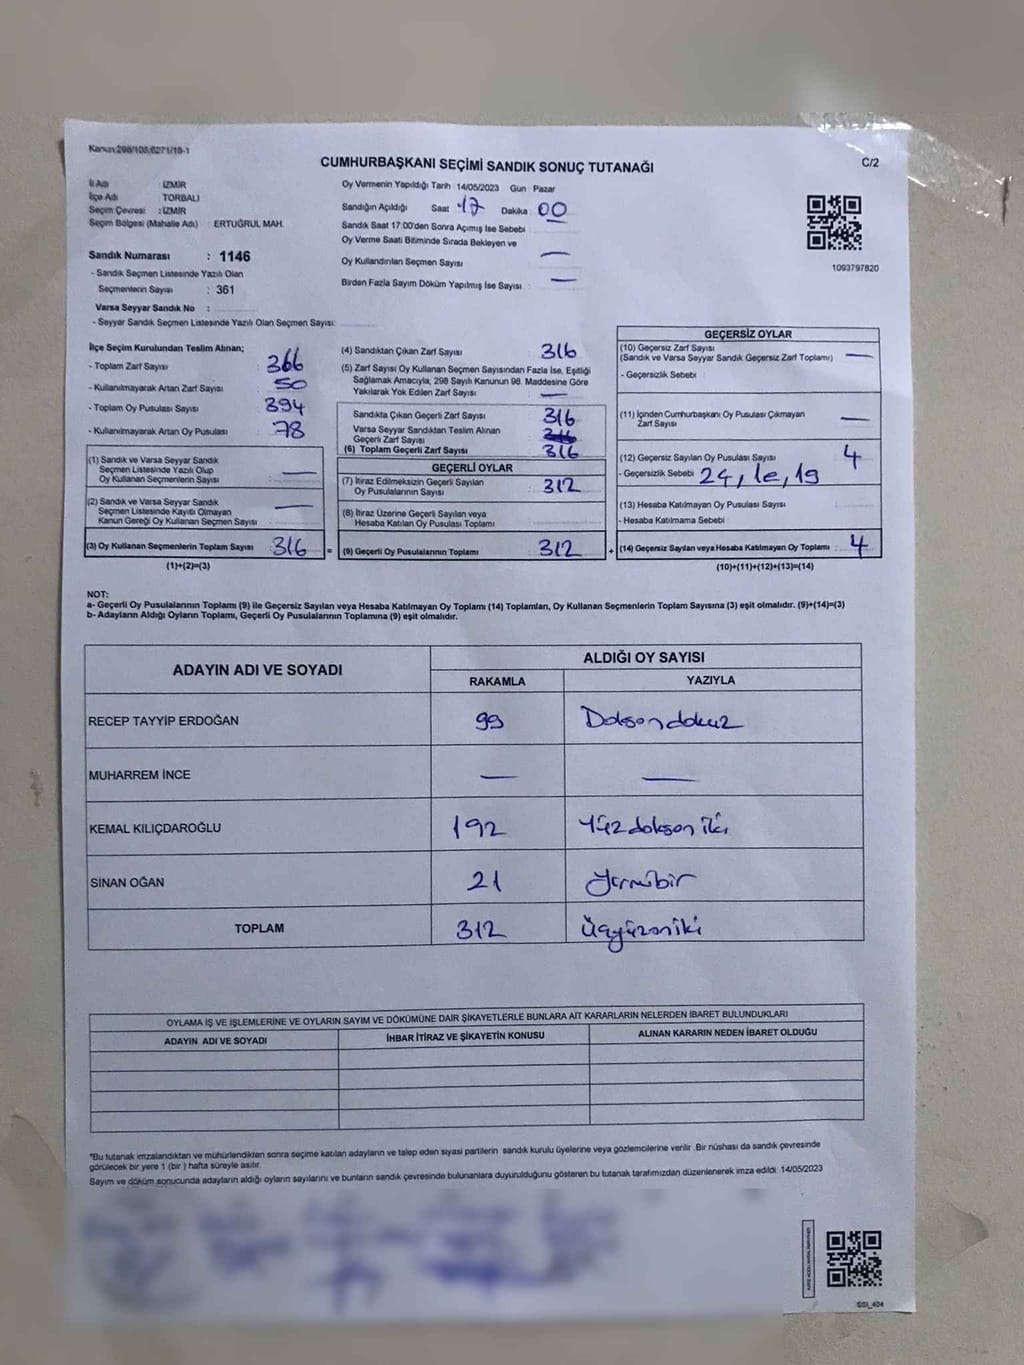 Kanun:298/105,6271/18-1
CUMHURBAŞKANI SEÇİMİ SANDIK SONUÇ TUTANAĞI
C/2
İl Adı : İZMİR
İlçe Adı TORBALI
Seçim Çevresi : İZMİR
Seçim Bölgesi (Mahalle Adı) : ERTUĞRUL MAH.
Oy Vermenin Yapıldığı Tarih 14/05/2023 Gün : Pazar
Sandığın Açıldığı Saat 17 Dakika : 00
Sandık Saat 17:00'den Sonra Açımış İse Sebebi
Oy Verme Saati Bitiminde Sırada Bekleyen ve
Oy Kullandırılan Seçmen Sayısı —
Birden Fazla Sayım Döküm Yapılmış İse Sayısı : —
1093797820
Sandık Numarası : 1146
- Sandık Seçmen Listesinde Yazılı Olan
Seçmenlerin Sayısı : 361
Varsa Seyyar Sandık No :
- Seyyar Sandık Seçmen Listesinde Yazılı Olan Seçmen Sayısı:
İlçe Seçim Kurulundan Teslim Alınan;
- Toplam Zarf Sayısı : 366
- Kullanılmayarak Artan Zarf Sayısı : 50
- Toplam Oy Pusulası Sayısı : 394
- Kullanılmayarak Artan Oy Pusulası : 78
(1) Sandık ve Varsa Seyyar Sandık
Seçmen Listesinde Yazılı Olup
Oy Kullanan Seçmenlerin Sayısı : —
(2) Sandık ve Varsa Seyyar Sandık
Seçmen Listesinde Kayıtlı Olmayan
Kanun Gereği Oy Kullanan Seçmen Sayısı : —
(3) Oy Kullanan Seçmenlerin Toplam Sayısı : 316
(1)+(2)=(3)
(4) Sandıktan Çıkan Zarf Sayısı : 316
(5) Zarf Sayısı Oy Kullanan Seçmen Sayısından Fazla İse, Eşitliği
Sağlamak Amacıyla, 298 Sayılı Kanunun 98. Maddesine Göre
Yakılarak Yok Edilen Zarf Sayısı : —
Sandıkta Çıkan Geçerli Zarf Sayısı : 316
Varsa Seyyar Sandıktan Teslim Alınan
Geçerli Zarf Sayısı :
(6) Toplam Geçerli Zarf Sayısı : 316
GEÇERLİ OYLAR
(7) İtiraz Edilmeksizin Geçerli Sayılan
Oy Pusulalarının Sayısı : 312
(8) İtiraz Üzerine Geçerli Sayılan veya
Hesaba Katılan Oy Pusulası Toplamı :
= (9) Geçerli Oy Pusulalarının Toplamı : 312
GEÇERSİZ OYLAR
(10) Geçersiz Zarf Sayısı
(Sandık ve Varsa Seyyar Sandık Geçersiz Zarf Toplamı) : —
- Geçersizlik Sebebi
(11) İçinden Cumhurbaşkanı Oy Pusulası Çıkmayan
Zarf Sayısı : —
(12) Geçersiz Sayılan Oy Pusulası Sayısı : 4
- Geçersizlik Sebebi 24, 1e, 19
(13) Hesaba Katılmayan Oy Pusulası Sayısı :
- Hesaba Katılmama Sebebi
+ (14) Geçersiz Sayılan veya Hesaba Katılmayan Oy Toplamı : 4
(10)+(11)+(12)+(13)=(14)
NOT:
a- Geçerli Oy Pusulalarının Toplamı (9) ile Geçersiz Sayılan veya Hesaba Katılmayan Oy Toplamı (14) Toplamları, Oy Kullanan Seçmenlerin Toplam Sayısına (3) eşit olmalıdır. (9)+(14)=(3)
b- Adayların Aldığı Oyların Toplamı, Geçerli Oy Pusulalarının Toplamına (9) eşit olmalıdır.
ADAYIN ADI VE SOYADI ALDIĞI OY SAYISI
RAKAMLA YAZIYLA
RECEP TAYYİP ERDOĞAN 99 Doksandokuz
MUHARREM İNCE — —
KEMAL KILIÇDAROĞLU 192 Yüzdoksan iki
SİNAN OĞAN 21 Yirmibir
TOPLAM 312 Üçyüzoniki
OYLAMA İŞ VE İŞLEMLERİNE VE OYLARIN SAYIM VE DÖKÜMÜNE DAİR ŞİKAYETLERLE BUNLARA AİT KARARLARIN NELERDEN İBARET BULUNDUKLARI
ADAYIN ADI VE SOYADI İHBAR İTİRAZ VE ŞİKAYETİN KONUSU ALINAN KARARIN NEDEN İBARET OLDUĞU
*Bu tutanak imzalandıktan ve mühürlendikten sonra seçime katılan adayların ve talep eden siyasi partilerin sandık kurulu üyelerine veya gözlemcilerine verilir .Bir nüshası da sandık çevresinde
görülecek bir yere 1 (bir ) hafta süreyle asılır.
Sayım ve döküm sonucunda adayların aldığı oyların sayılarını ve bunların sandık çevresinde bulunanlara duyurulduğunu gösteren bu tutanak tarafımızdan düzenlenerek imza edildi. 14/05/2023
SSI_404